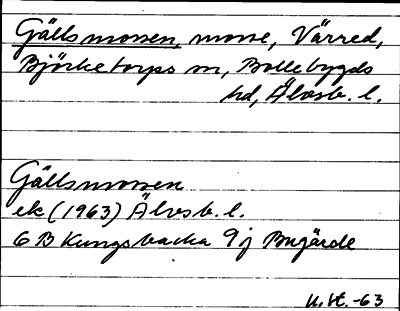 Gällsmossen, mosse, Värred,
Björketorps sn, Bollebygds
hd, Älvsb. l.
Gällsmossen
ek (1963) Älvsb. l.
6 B Kungsbacka 9 j Bugärde
-63